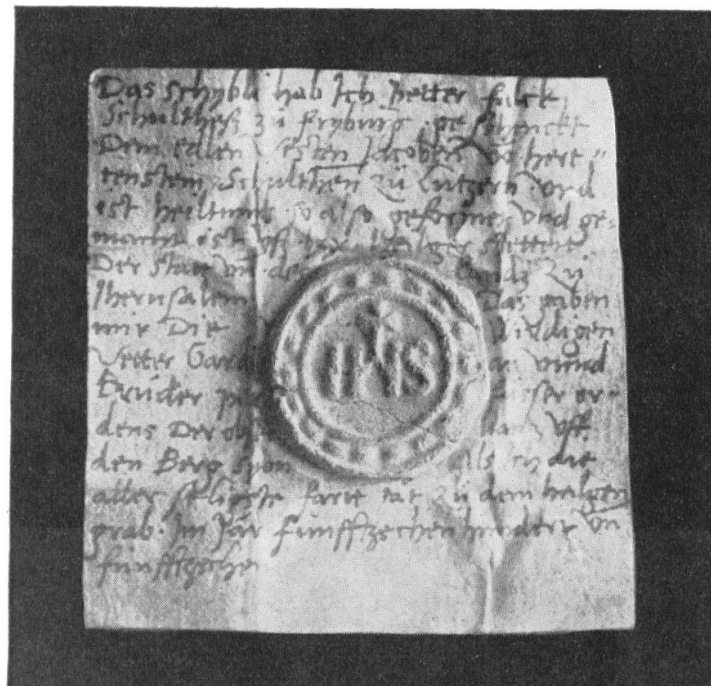 Das Schybli hab Ich petter falck
Schultheß zů fryburg geschenckt
Dem edlen vesten Jacoben võ hert
tenstein Schulthen zů Lutzern vnd
ist heiltumb so also geformet vnd ge-
macht ist vß
Der Statt vñ zů
Jherusalem Das gaben
mir Die wirdigen
Vetter Gardi vnnd
brůder or-
dens Der vff
den Berg syon als ich die
aller seligiste fart tät zů dem helgen
grab. Jm Jar fünffzechen hundert vñ
fünffzechen
IHS